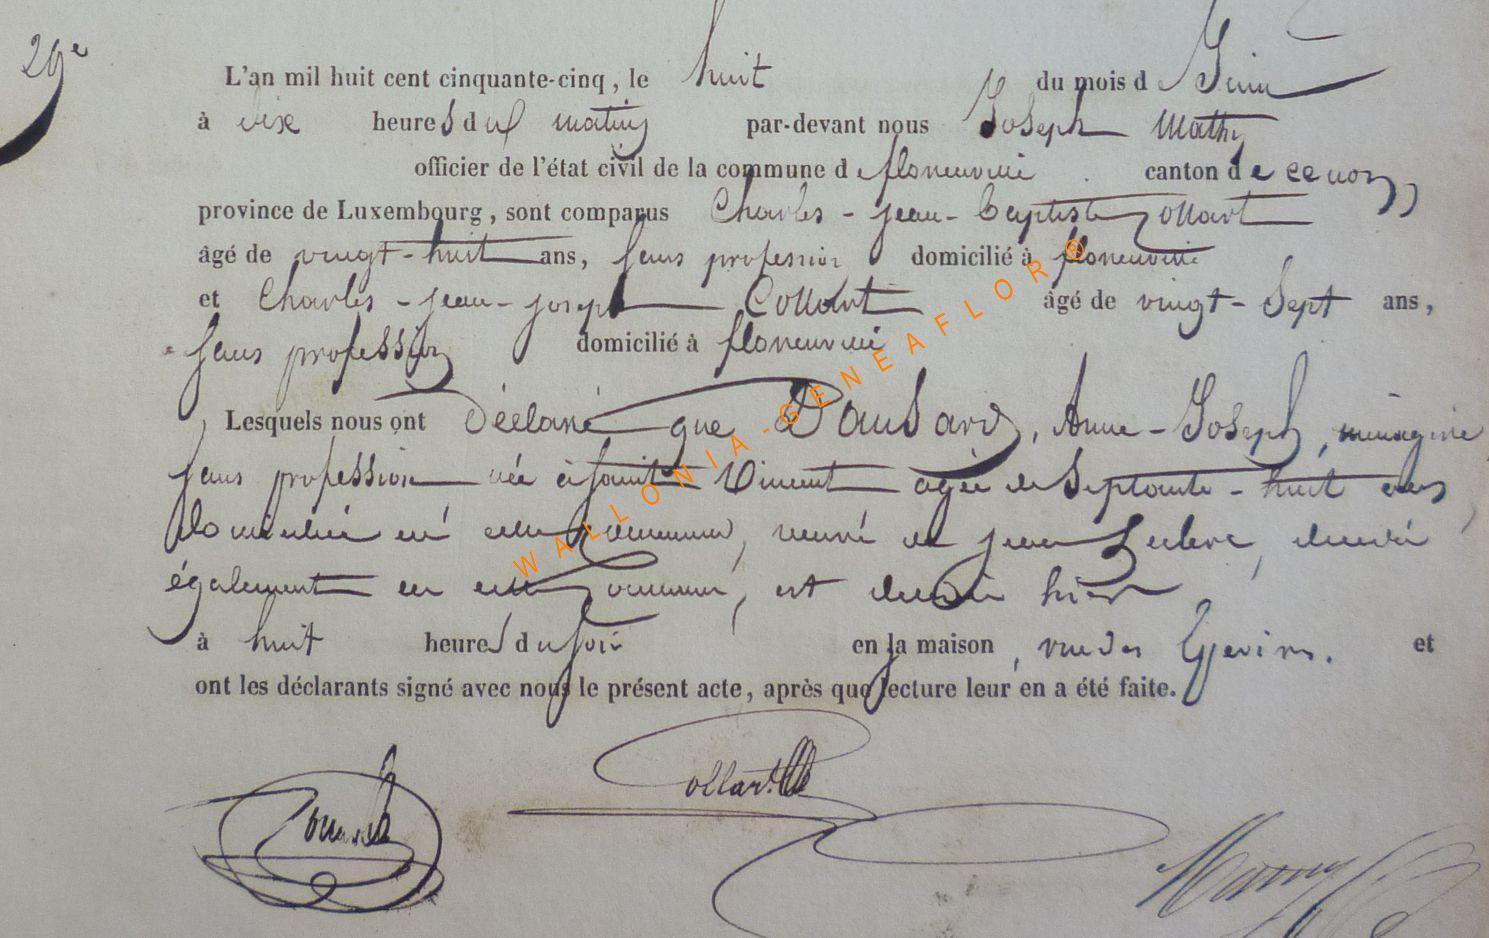 29e
L'an mil huit cent cinquante-cinq, le huit du mois d Juin
à dix heures du matin par-devant nous Joseph Mathy
officier de l'état civil de la commune de florenville canton de
province de Luxembourg, sont comparus Charles-jean-Baptiste Collart
âgé de vingt-huit ans, sans profession domicilié à florenville
et Charles-jean-joseph Collart âgé de vingt-sept ans,
sans profession domicilié à florenville
Lesquels nous ont Déclaré que Dausard, Anne-Joseph, ménagère
sans profession née à saint Vincent agée de Septante-huit ans
domiciliée en cette commune, veuve de jean Leclerc, décédé
également en cette Commune, est décédée hier
à huit heures du soir en la maison, rue des Epevins. et
ont les déclarants signé avec nous le présent acte, après que lecture leur en a été faite.
WALLONIA-GENEAFLOR®
Collart